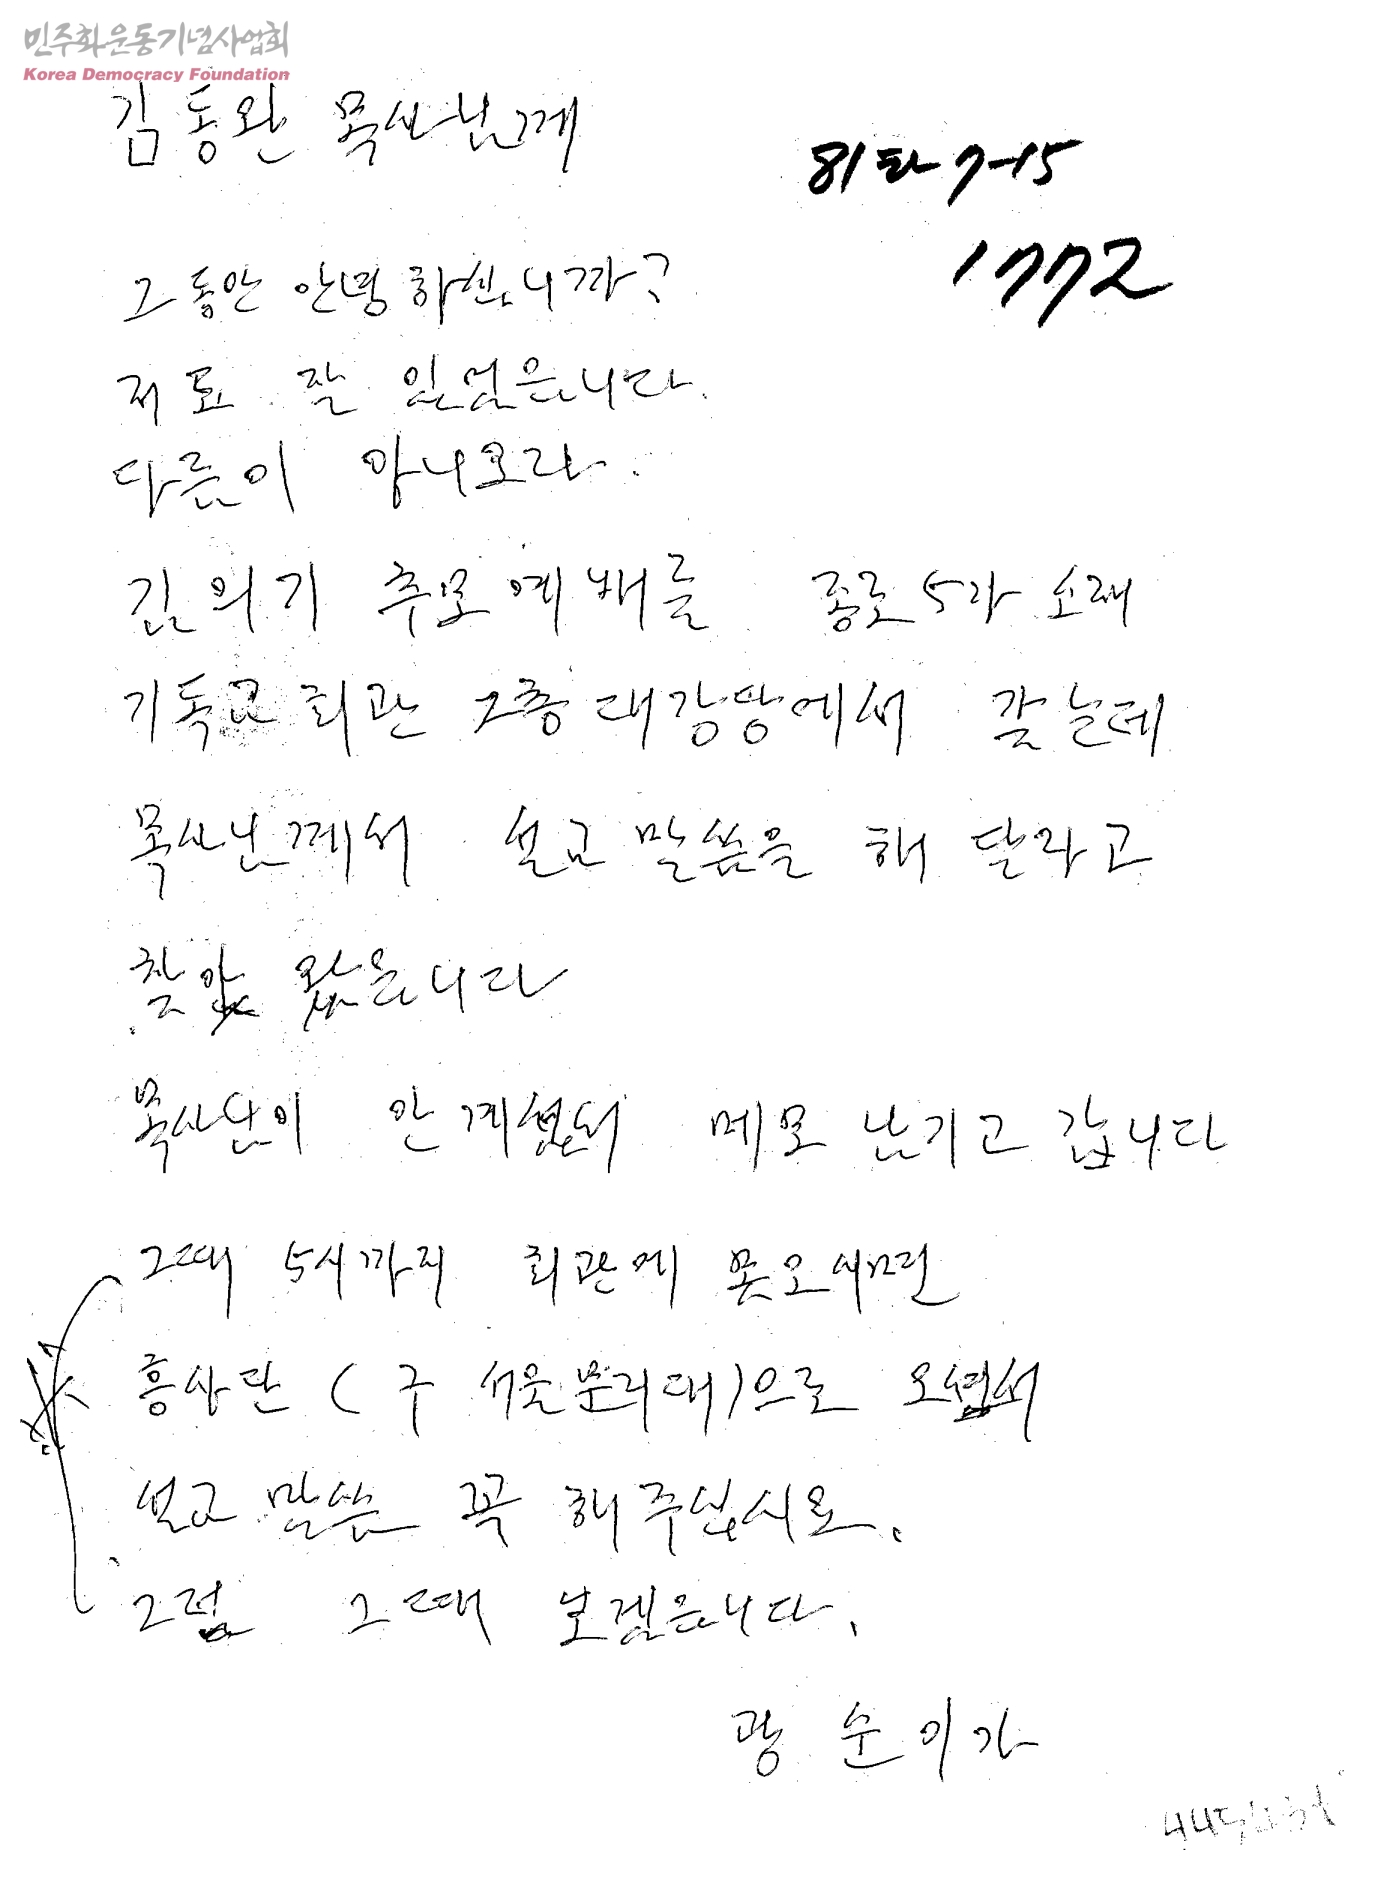 민주화운동기념사업회
Korea Democracy Foundation
김동완 목사님께
81타7-15
1772
그동안 안녕하십니까?
저도 잘 있었읍니다.
다름이 아니오라.
김의기 추모예배를 종로5가 소재
기독교회관 2층대강당에서 갖는데
목사님께서 설교 말씀을 해 달라고
찾아 왔읍니다
목사님이 안 계셔서 메모 남기고 갑니다
그때 5시까지 회관에 못오시면
흥사단 (구 서울문리대)으로 오셔서
설교 말씀 꼭 해주십시요.
그럼 그때 뵙겠읍니다.
광순이가